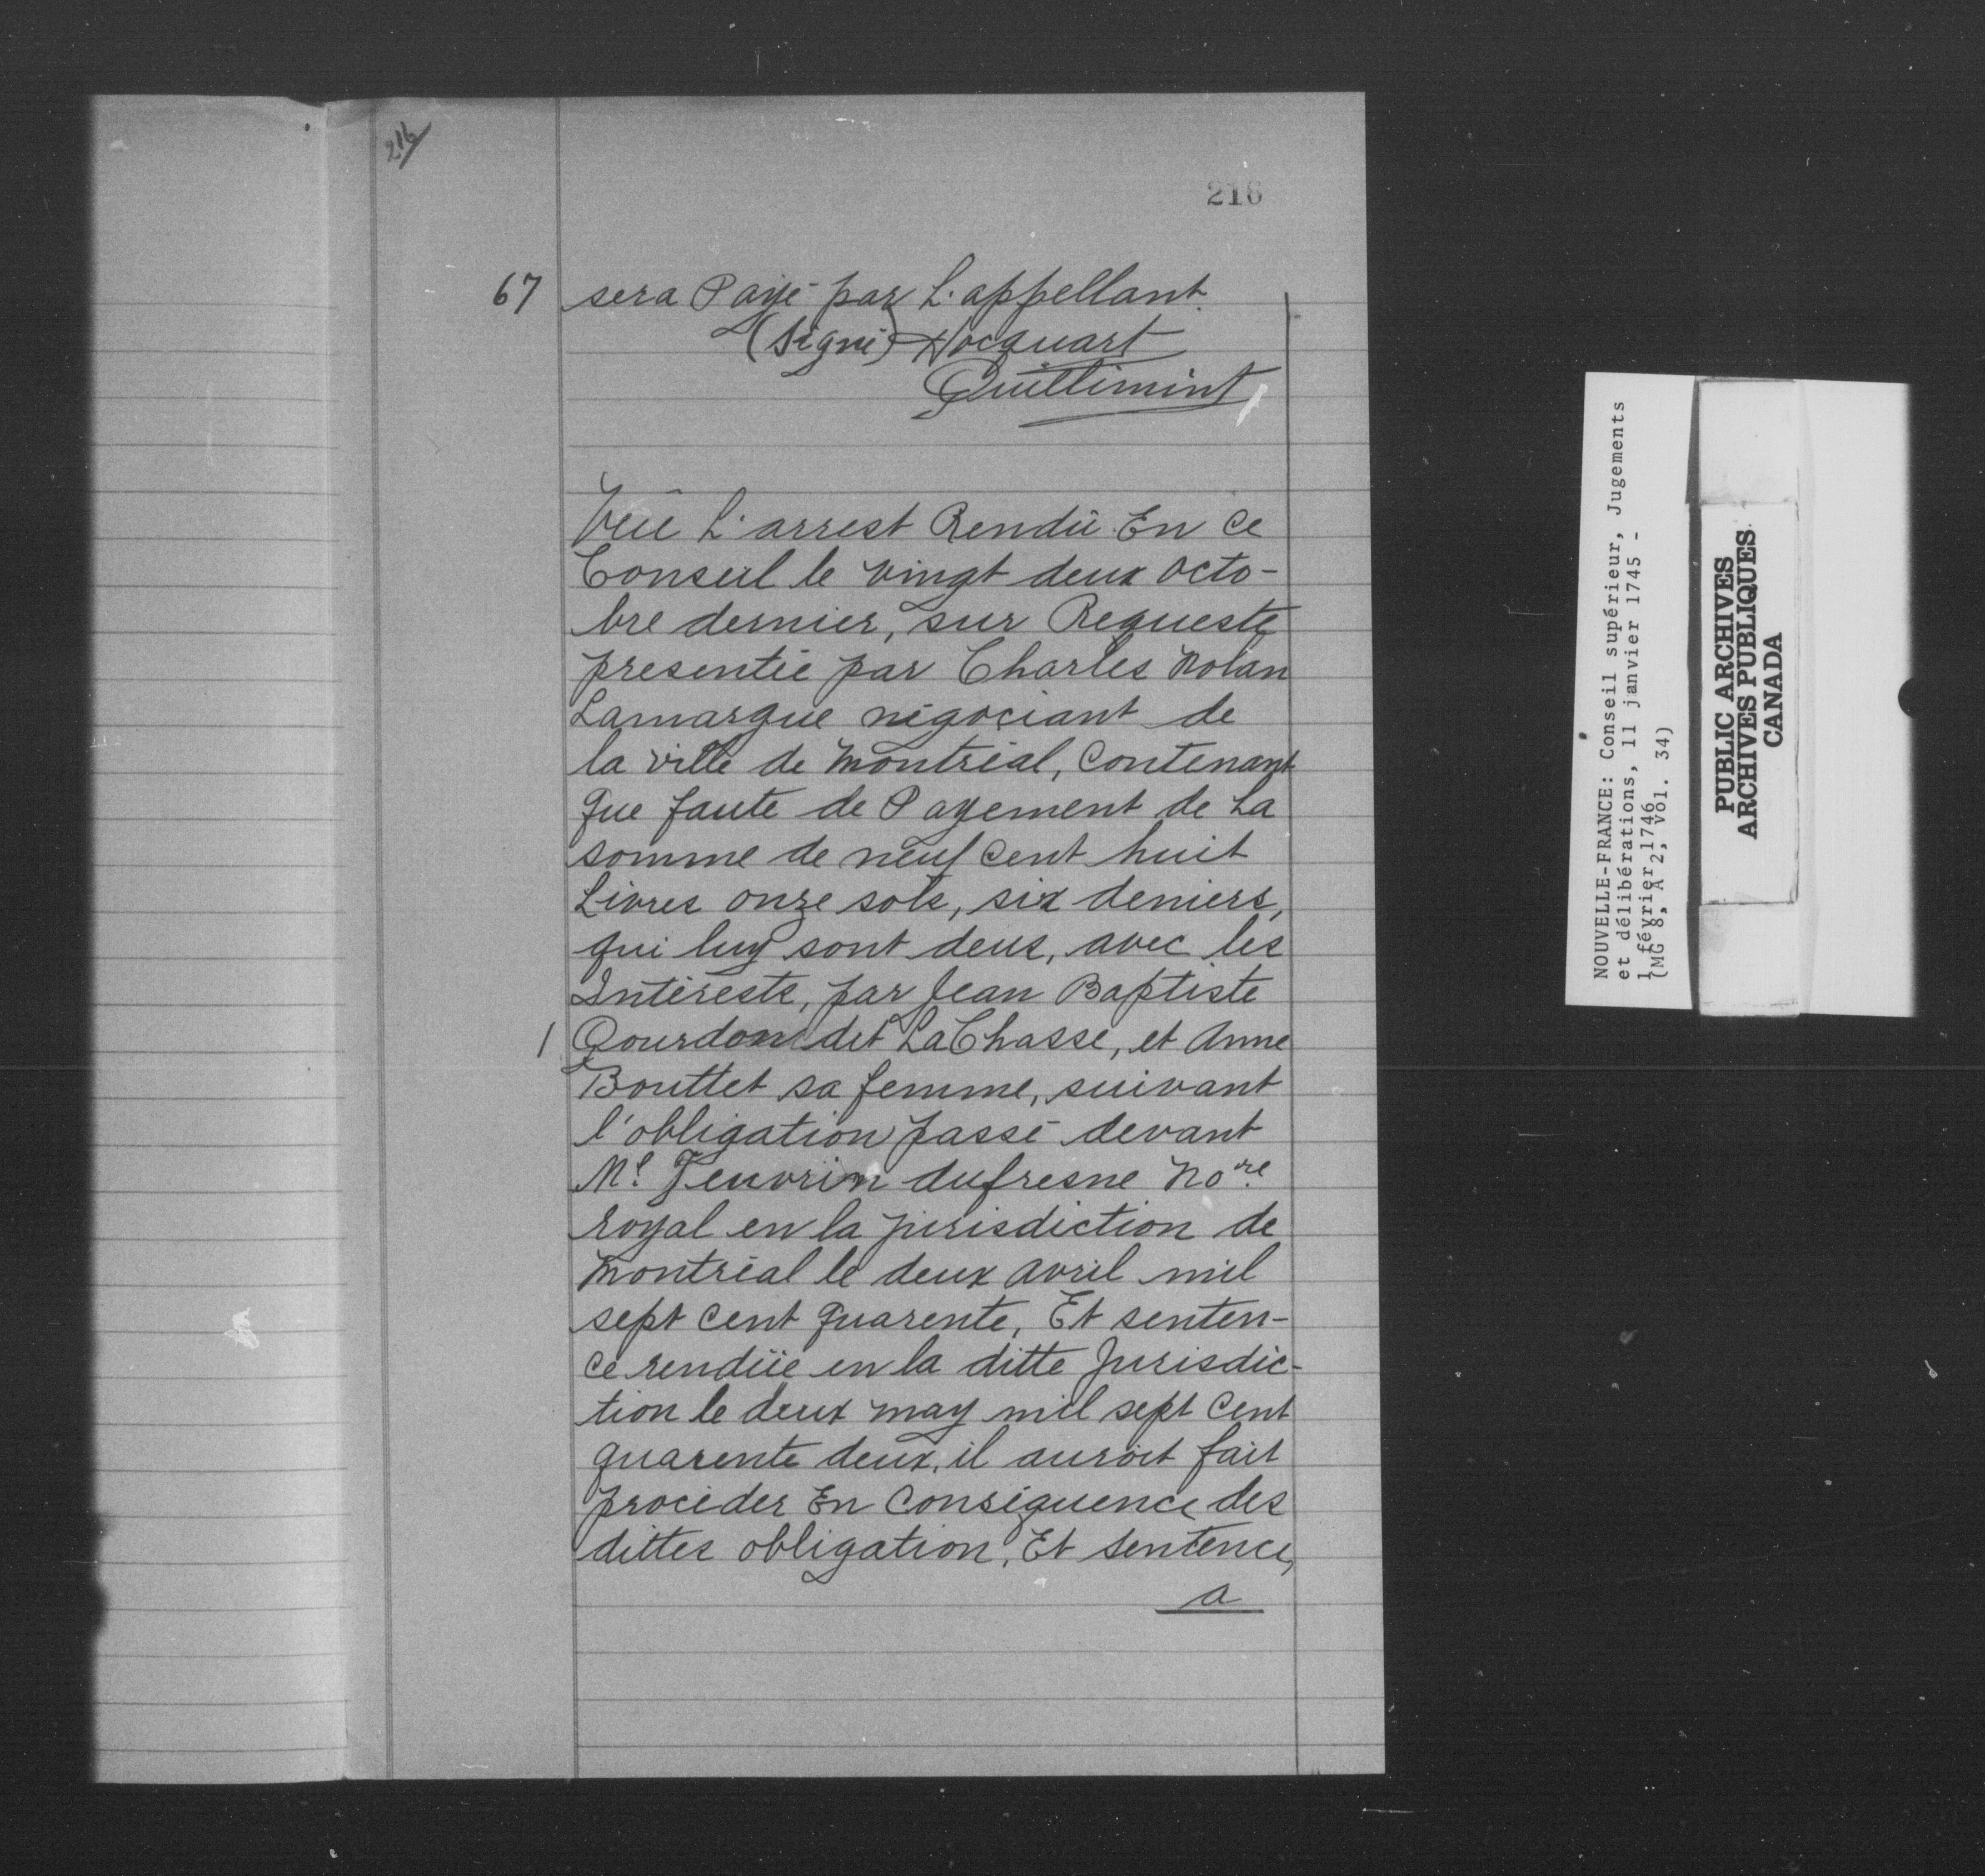 216
216
67 sera Payé par L'appellant.
(Signé) Hocquart
Guillimint
Veü L'arrest Rendü En Ce
Conseil le vingt deux octo-
bre dernier, sur Requeste
presentée par Charles Nolan
Lamarque négociant de
la ville de Montréal, Contenant
que faute de Payement de La
somme de neuf cent huit
Livres onze sols, six deniers,
qui luy sont deus, avec les
Intérests, par Jean Baptiste
1 Gourdon dit LaChasse, et Anne
Bouttet sa femme, suivant
l'obligation passé devant
Me. Jeuvrin dufresne Nore.
royal en la jurisdiction de
Montréal le deux avril mil
sept cent quarente, Et senten-
ce rendüe en la ditte Jurisdic-
tion le deux may mil sept Cent
quarente deux, il auroit fait
procéder En Conséquence des
dittes obligation, Et Sentence,
a
NOUVELLE-FRANCE: Conseil supérieur, Jugements
et délibérations, 11 janvier 1745 -
1 février 1746
(MG 8, A 2, vol. 34)
PUBLIC ARCHIVES
ARCHIVES PUBLIQUES
CANADA